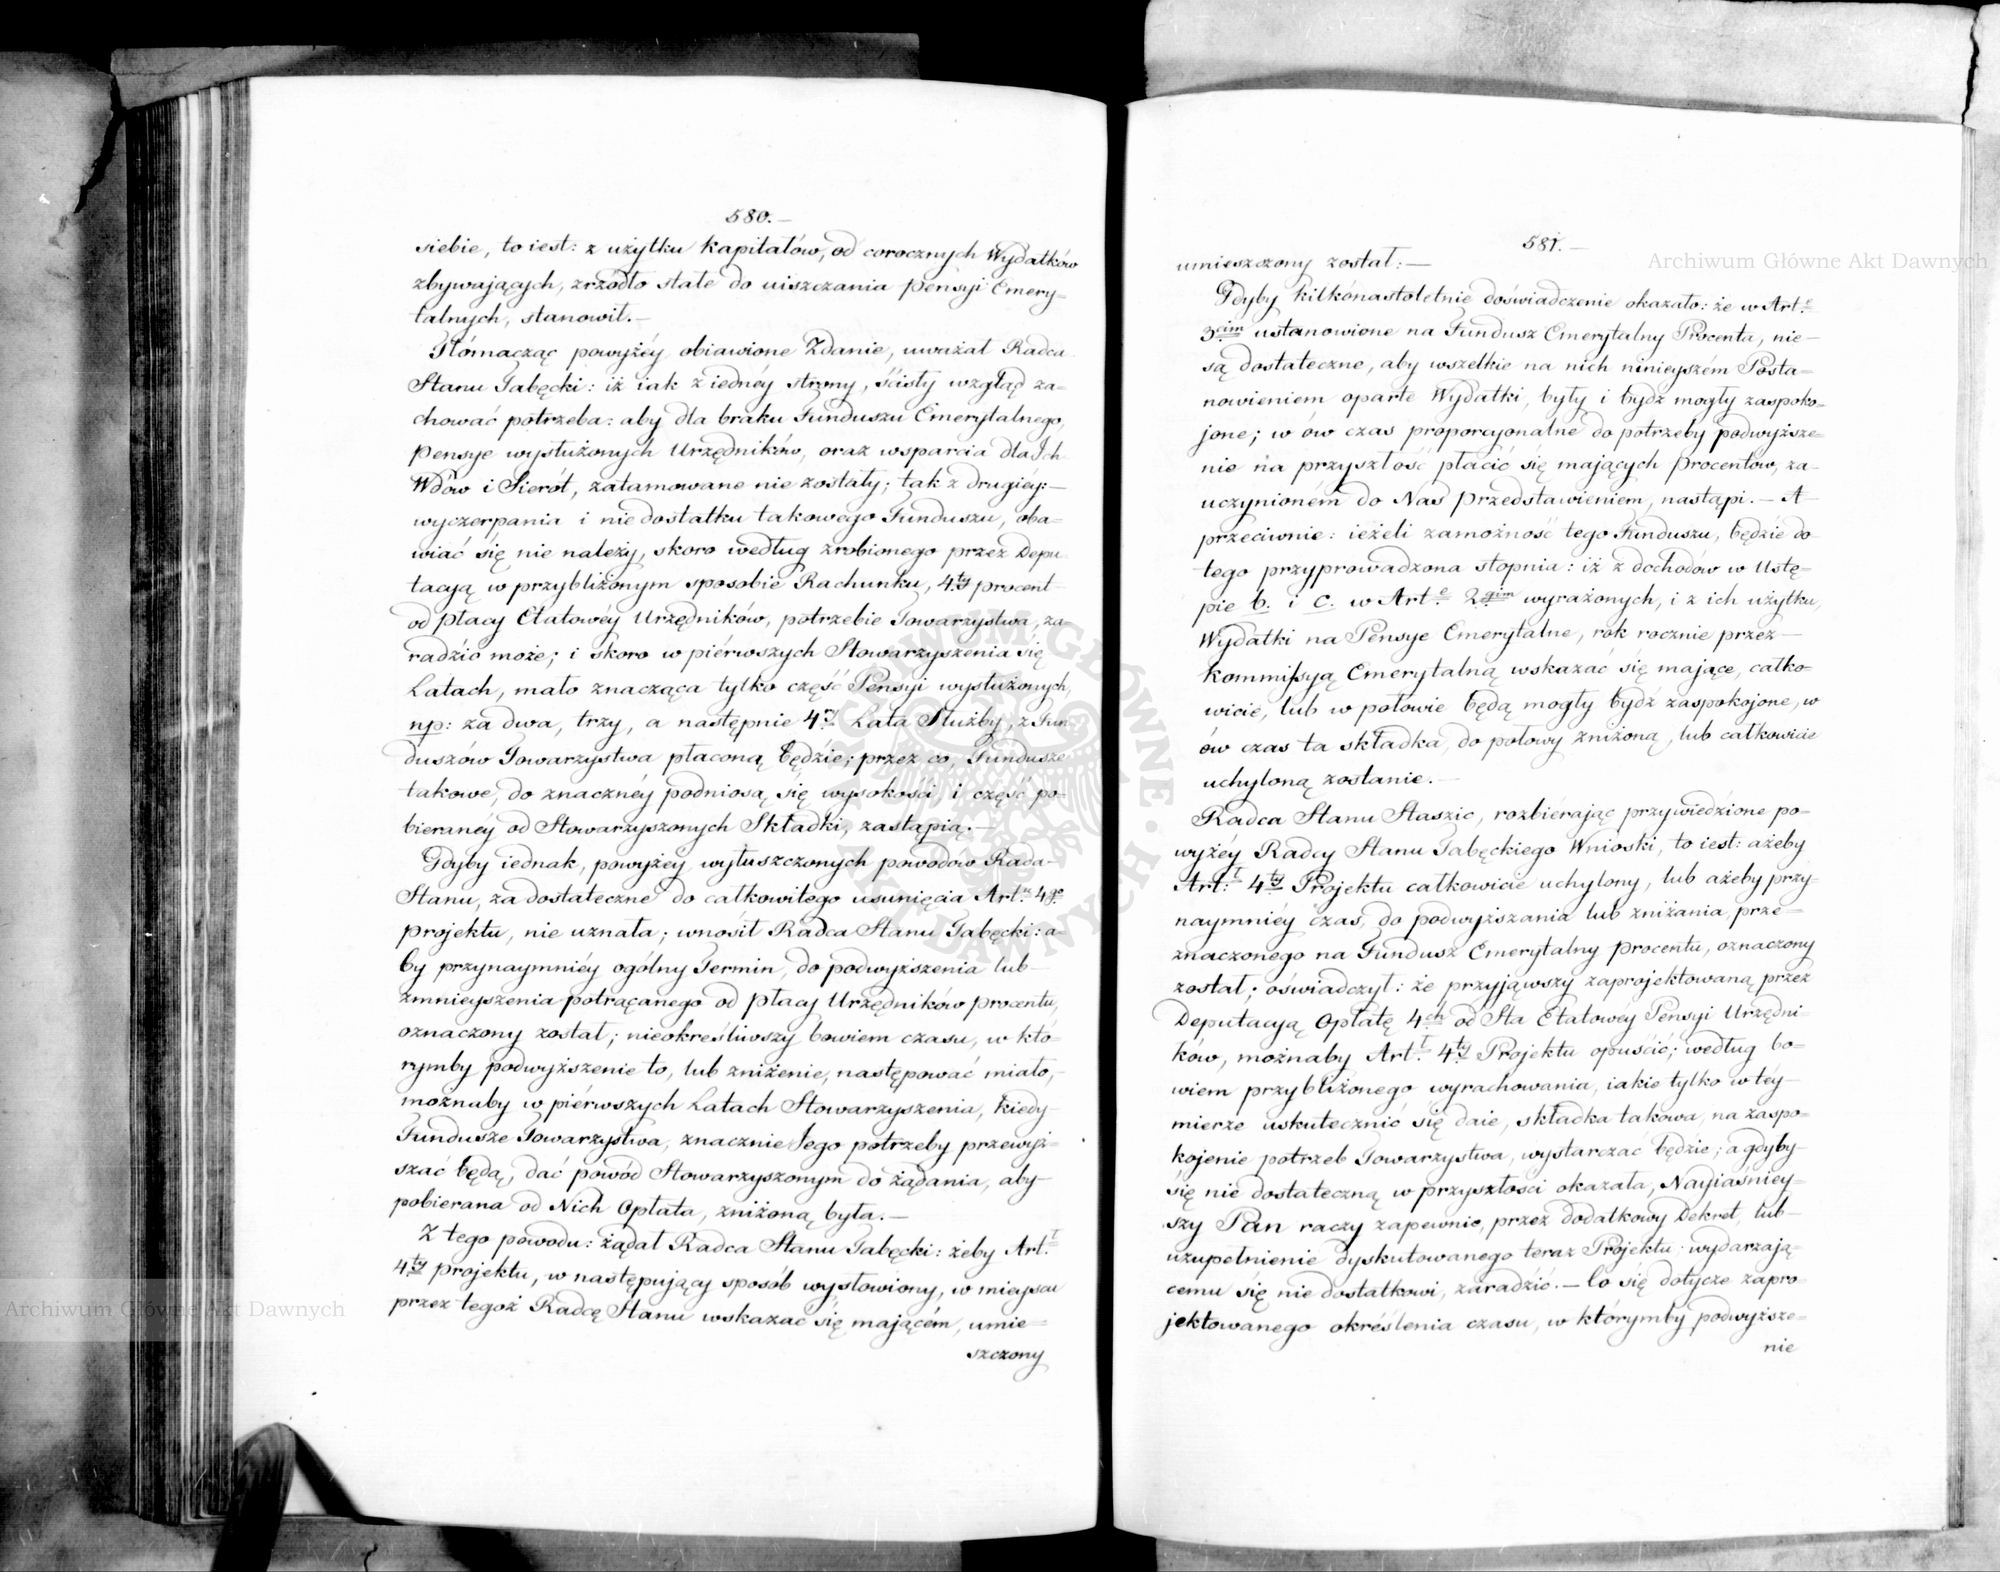 580.—
siebie, to iest: z użytku kapitałów, od corocznych Wydatków
zbywających, zrzódło stałe do uiszczania pensyi Emery=
talnych, stanowił.—
Tłómacząc powyżéy obiawione Zdanie, uważał Radca
Stanu Gabęcki: iż iak z iednéy strony, ścisły wzgląd za=
chować potrzeba: aby dla braku Funduszu Emerytalnego,
pensye wysłużonych Urzędników, oraz wsparcia dla Ich
Wdów i Sierót, zatamowane nie zostały; tak z drugiéy:—
wyczerpania i niedostatku takowego Funduszu, oba=
wiać się nie należy, skoro według zrobionego przez Depu=
tacyą w przybliżonym sposobie Rachunku, 4ty procent
od płacy Etatowéy Urzędników, potrzebie Towarzystwa, za=
radzić może; i skoro w piérwszych Stowarzyszenia się
Latach, mało znacząca tylko część Pensyi wysłużonych,
np: za dwa, trzy, a następnie 4ry Lata Służby, z Fun=
duszów Towarzystwa płaconą będzie; przez co, Fundusze
takowe, do znacznéy podniosą się wysokości, i część po=
bieranéy od Stowarzyszonych Składki, zastąpią.—
Gdyby iednak, powyżéy wyłuszczonych powodów Rada
Stanu, za dostateczne do całkowitego usunięcia Art.u 4go
projektu, nie uznała; wnosił Radca Stanu Gabęcki: a=
by przynaymniéy ogólny Termin, do podwyższenia lub—
zmnieyszenia potrącanego od płacy Urzędników procentu,
oznaczony został; nieokreśliwszy bowiem czasu, w któ=
rymby podwyższenie to, lub zniżenie, następować miało,—
możnaby w piérwszych Latach Stowarzyszenia, kiedy
Fundusze Towarzystwa, znacznie Jego potrzeby przewyż=
szać będą, dać powód Stowarzyszonym do żądania, aby
pobierana od Nich Opłata, zniżoną była.—
Z tego powodu: żądał Radca Stanu Gabęcki: żeby Art.ł
4ty projektu, w następujący sposób wysłowiony, w mieyscu
przez tegoż Radcę Stanu wskazać się mającém, umie=
szczony
581.—
umieszczony został:—
Gdyby kilkónastoletnie doświadczenie okazało: że w Art.e
3cim ustanowione na Fundusz Emerytalny Procenta, nie—
są dostateczne, aby wszelkie na nich ninieyszém Posta=
nowieniem oparte Wydatki, były i bydź mogły zaspoko=
jone; w ów czas proporcyonalne do potrzeby podwyższe=
nie na przyszłość płacić się mających procentów, za—
uczynioném do Nas Przedstawieniem, nastąpi.— A
przeciwnie: ieżeli zamożność tego Funduszu, będzie do
tego przyprowadzona stopnia: iż z dochodów w Ustę=
pie b. i C. w Art.e 2gim wyrażonych, i z ich użytku,
Wydatki na Pensye Emerytalne, rok rocznie przez—
Kommissyą Emerytalną wskazać się mające, całko=
wicie, lub w połowie będą mogły bydź zaspokojone, w
ów czas ta składka, do połowy zniżoną, lub całkowicie
uchyloną zostanie.—
Radca Stanu Staszic, rozbiérając przywiedzione po=
wyżéy Radcy Stanu Gabęckiego Wnioski, to iest: ażeby
Art.ł 4ty Projektu całkowicie uchylony, lub ażeby przy=
naymniéy czas, do podwyższania lub zniżania, prze=
znaczonego na Fundusz Emerytalny procentu, oznaczony
został; oświadczył: że przyjąwszy zaprojektowaną przez
Deputacyą Opłatę 4ch od Sta Etatowey Pensyi Urzędni=
ków, możnaby Art.ł 4ty Projektu opuścić; według bo=
wiem przybliżonego wyrachowania, iakie tylko w téy—
mierze uskutecznić się daie, składka takowa, na zaspo=
kojenie potrzeb Towarzystwa, wystarczać będzie; a gdyby
się nie dostateczną w przyszłości okazała, Nayiaśniey=
szy Pan raczy zapewnie, przez dodatkowy Dekret, lub—
uzupełnienie dyskutowanego teraz Projektu: wydarzają=
cemu się niedostatkowi, zaradzić.— Co się dotycze zapro=
jektowanego określenia czasu, w którymby podwyższe=
nie
Archiwum Główne Akt Dawnych
Archiwum Główne Akt Dawnych
ARCHIWUM GŁÓWNE AKT DAWNYCH